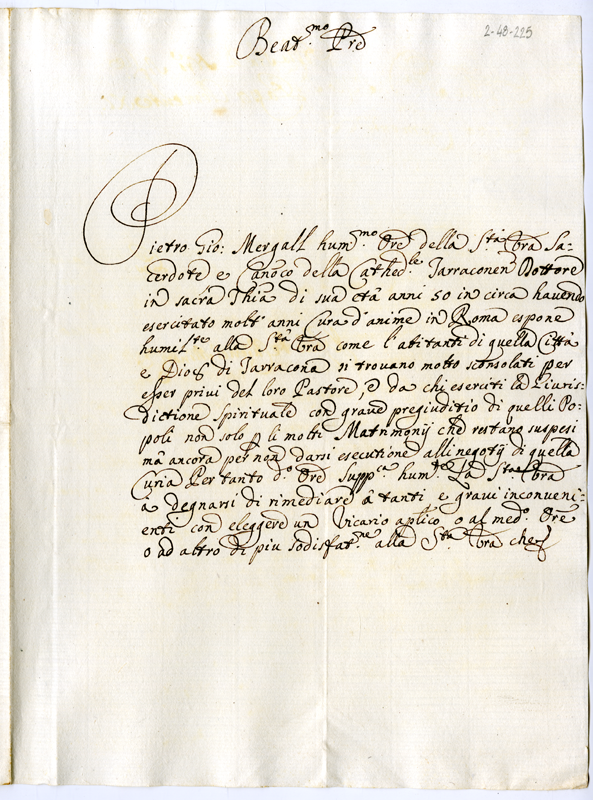 2-48-225
Beat.mo Pre
Pietro Gio: Mergall hum.mo Ore della S.ta Vra Sa-
cerdote e Canoco della Cathed.le Tarraconen Dottore
in sacra Thia di sua età anni 50 in circa havendo
esercitato molt' anni Cura d'anime in Roma espone
humil.te alla S.ta Vra come l'abitanti di quella Città
e Dioc di Tarracona si trovano molto sconsolati per
esser privi del loro Pastore, e da chi eserciti la Giuris-
dictione spirituale con grave pregiuditio di quelli Po-
poli non solo p li molti Matrimonij che restano suspesi
mà ancora per non darsi esecutione alli negotij di quella
Curia Per tanto d.o Ore supp.ca hum.te La S.ta Vra
à degnarsi di rimediare à tanti e gravi inconveni-
enti con eleggere un Vicario aplico o al med.o Ore
o ad altro di piu sodisfat.ne alla S.ta Vra che